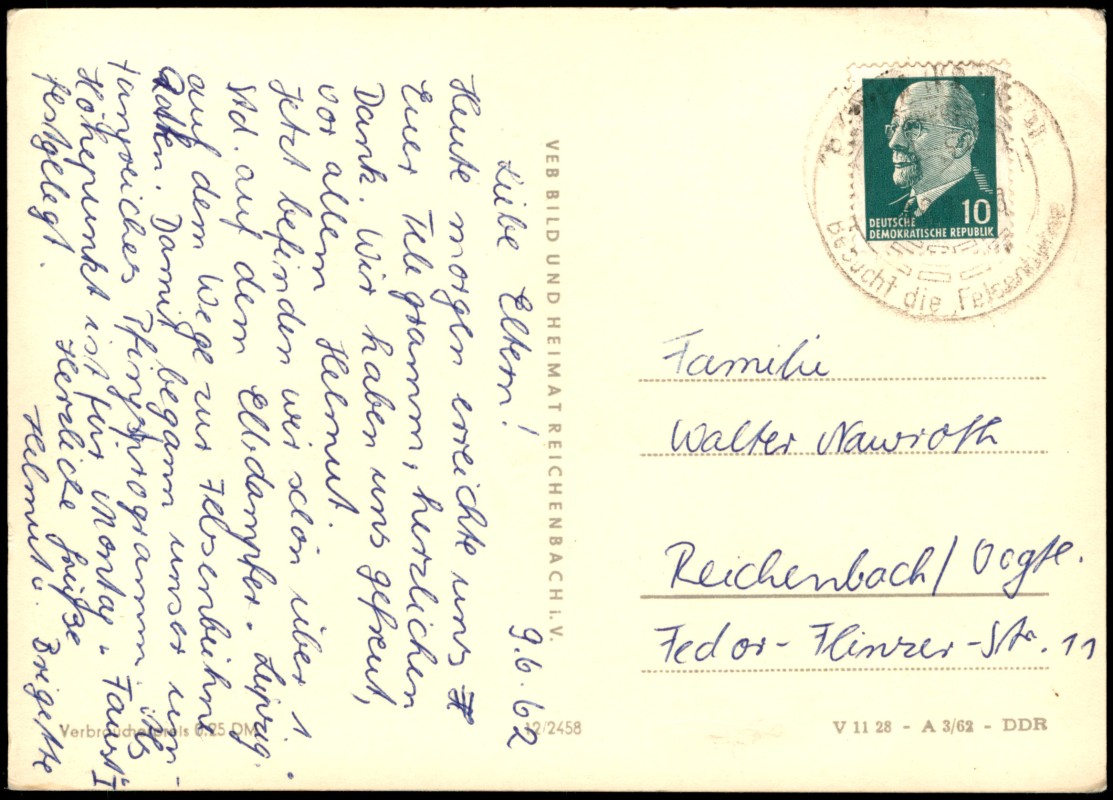 9.6.62
Liebe Eltern!
Heute morgen erreichte uns
Euer Telegramm, herzlichen
Dank. Wir haben uns gefreut,
vor allem Helmut.
Jetzt befinden wir schon über 1
Std. auf dem Elbdampfer "Leipzig"
auf dem Wege zur Felsenbühne
Rathen. Damit begann unser um-
fangreiches Pfingstprogramm. Als
Höhepunkt ist für Montag "Faust I"
festgelegt.
Herzliche Grüße
Helmut u. Brigitte
VEB BILD UND HEIMAT REICHENBACH i. V.
Verbraucherpreis 0,25 DM
12/2458
V 11 28 - A 3/62 - DDR
10
DEUTSCHE
DEMOKRATISCHE REPUBLIK
Besucht die Felsenbühne
Familie
Walter Nawroth
Reichenbach/Vogtl.
Fedor-Flinzer-Str. 11